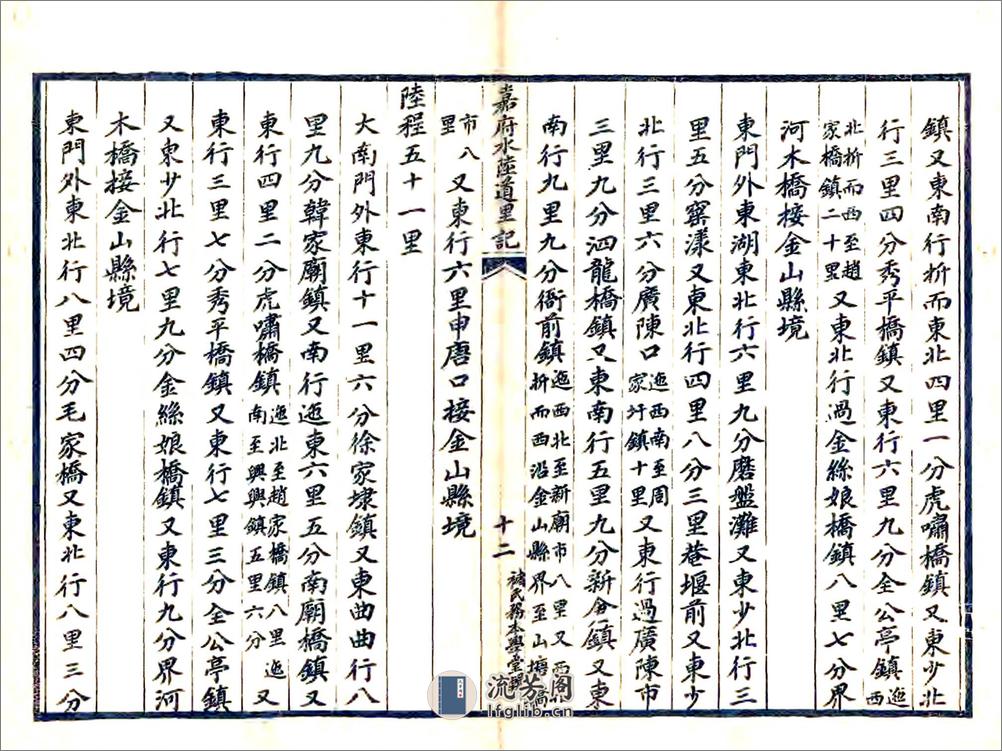 鎮又東南行折而東北四里一分虎嘯橋鎮又東少北
行三里四分秀平橋鎮又東行六里九分全公亭鎮迤西
北折而西至趙家橋鎮二十里又東北行過金絲娘橋鎮八里七分界
河木橋接金山縣境
東門外東湖東北行六里九分磨盤灘又東少北行三
里五分窑漾又東北行四里八分三里菴堰前又東少
北行三里六分廣陳口迤西南至周家圩鎮十里又東行過廣陳市
三里九分泗龍橋鎮又東南行五里九分新倉鎮又東
南行九里九分衙前鎮迤西北至新廟市八里又西折而西沿金山縣界至山塘
嘉府水陸道里記
十二
褚氏務本學堂
市八里又東行六里申唐口接金山縣境
陸程五十一里
大南門外東行十一里六分徐家埭鎮又東曲曲行八
里九分韓家廟鎮又南行迤東六里五分南廟橋鎮又
東行四里二分虎嘯橋鎮迤北至趙家橋鎮八里迤南至興興鎮五里六分又
東行三里七分秀平橋鎮又東行七里三分全公亭鎮
又東少北行七里九分金絲娘橋鎮又東行九分界河
木橋接金山縣境
東門外東北行八里四分毛家橋又東北行八里三分
流芳阁
lfglib.cn